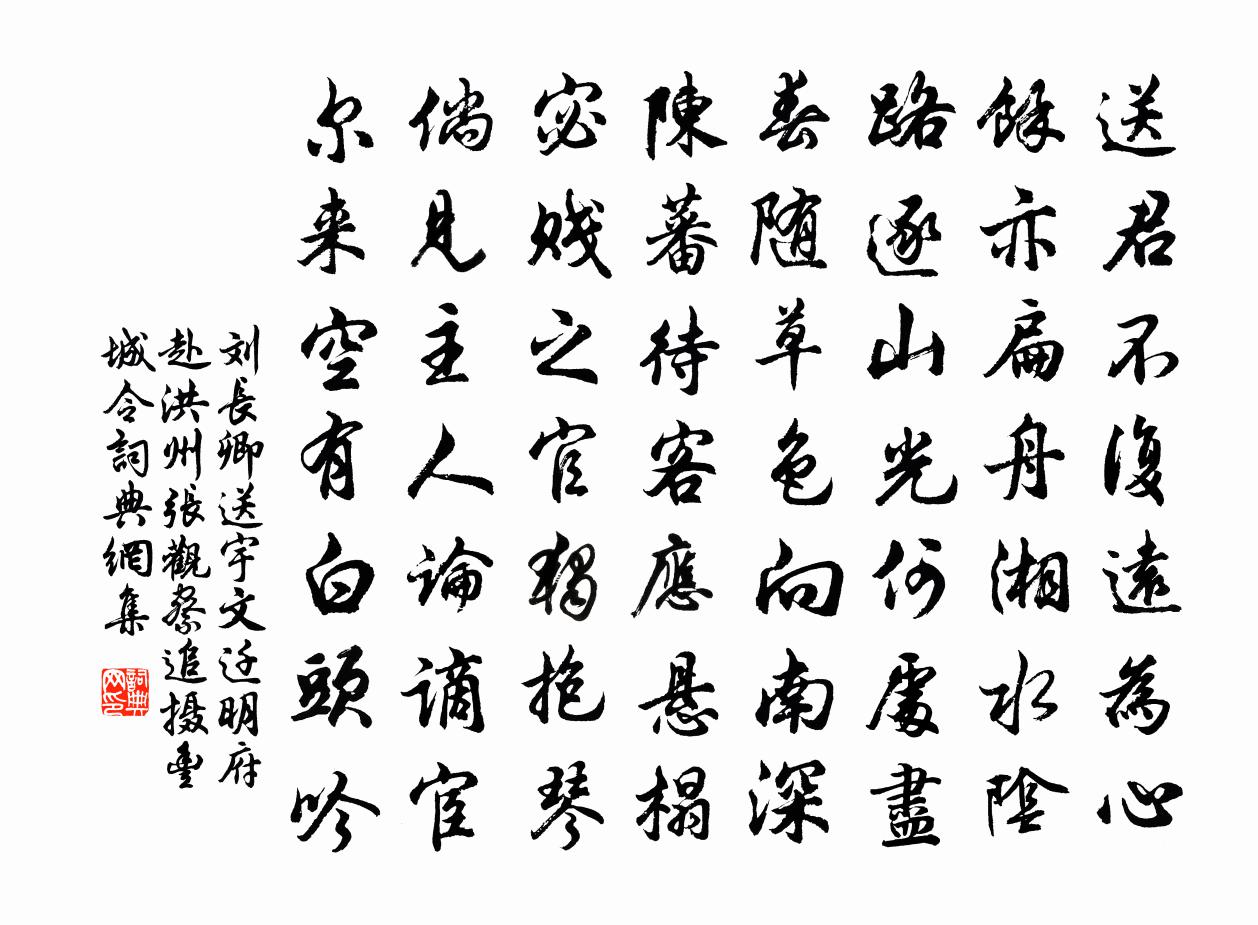 送君不復遠為心
餘亦扁舟湘水陰
路逐山光何處盡
春隨草色向南深
陳蕃待客應懸榻
宓賤之官獨抱琴
倘見主人論謫宦
尔来空有白頭吟
刘長卿送宇文迁明府
赴洪州張觀察追摄豐
城令詞典網集
詞典网印